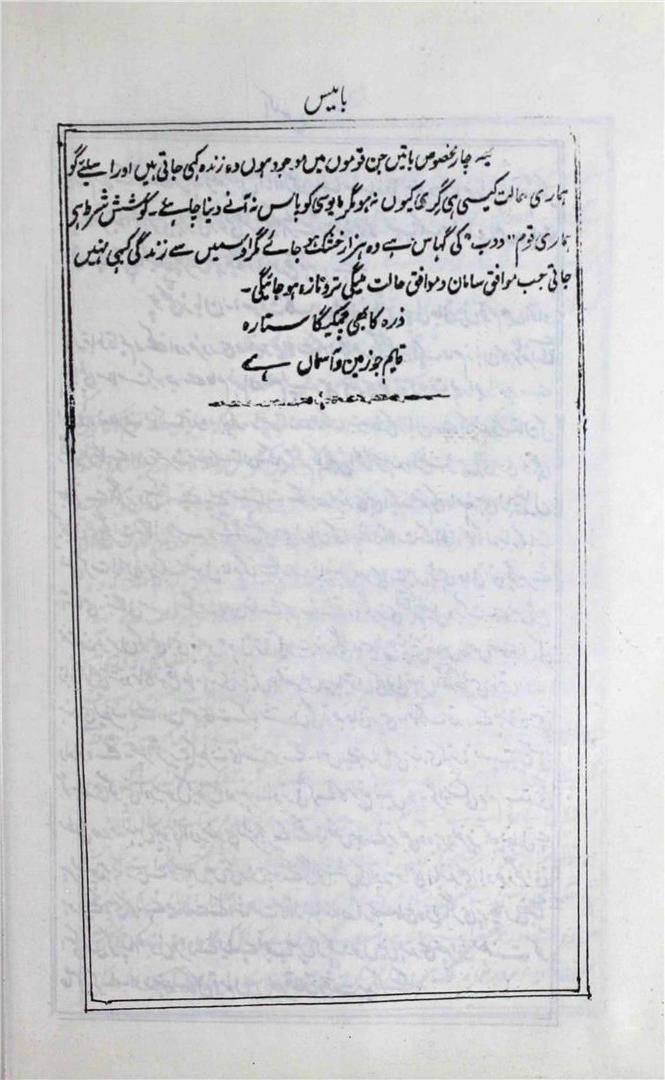 بائیس
یہ چار مخصوص باتیں جن قوموں میں موجود ہوں وہ زندہ کہی جاتی ہیں اور اسلیے گو
ہماری حالت کیسی ہی گری کیوں نہو مگر مایوسی کو پاس نہ آنے دینا چاہئے۔ کوشش شرط ہی
ہماری قوم "دوب" کی گہاس ہے وہ ہزار خشک ہو جائے مگر اوسمیں سے زندگی کہی نہیں
جاتی جب موافق سامان و موافق حالت ملیگی تروتازہ ہو جائیگی۔
ذرہ کا بھی چمکیگا ستارہ
قایم جو زمین و آسماں ہے